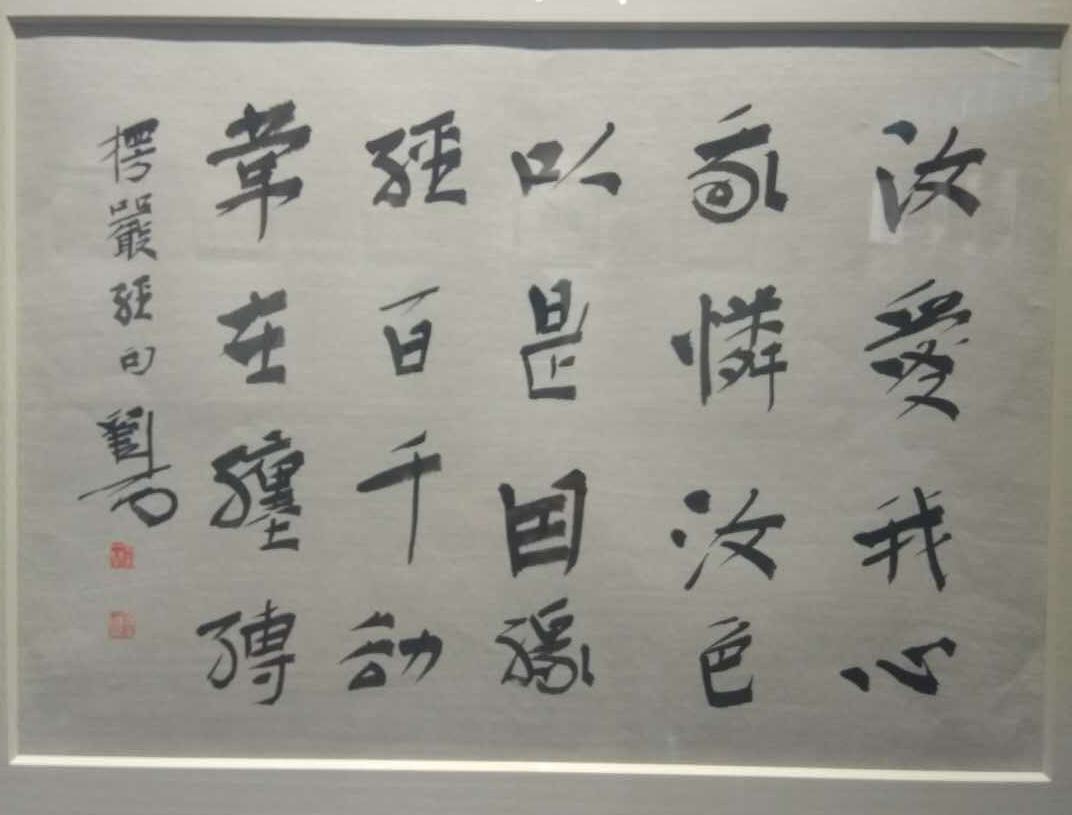 汝愛我心
我憐汝色
以是因緣
經百千劫
常在纏縛
楞嚴經句 劉石